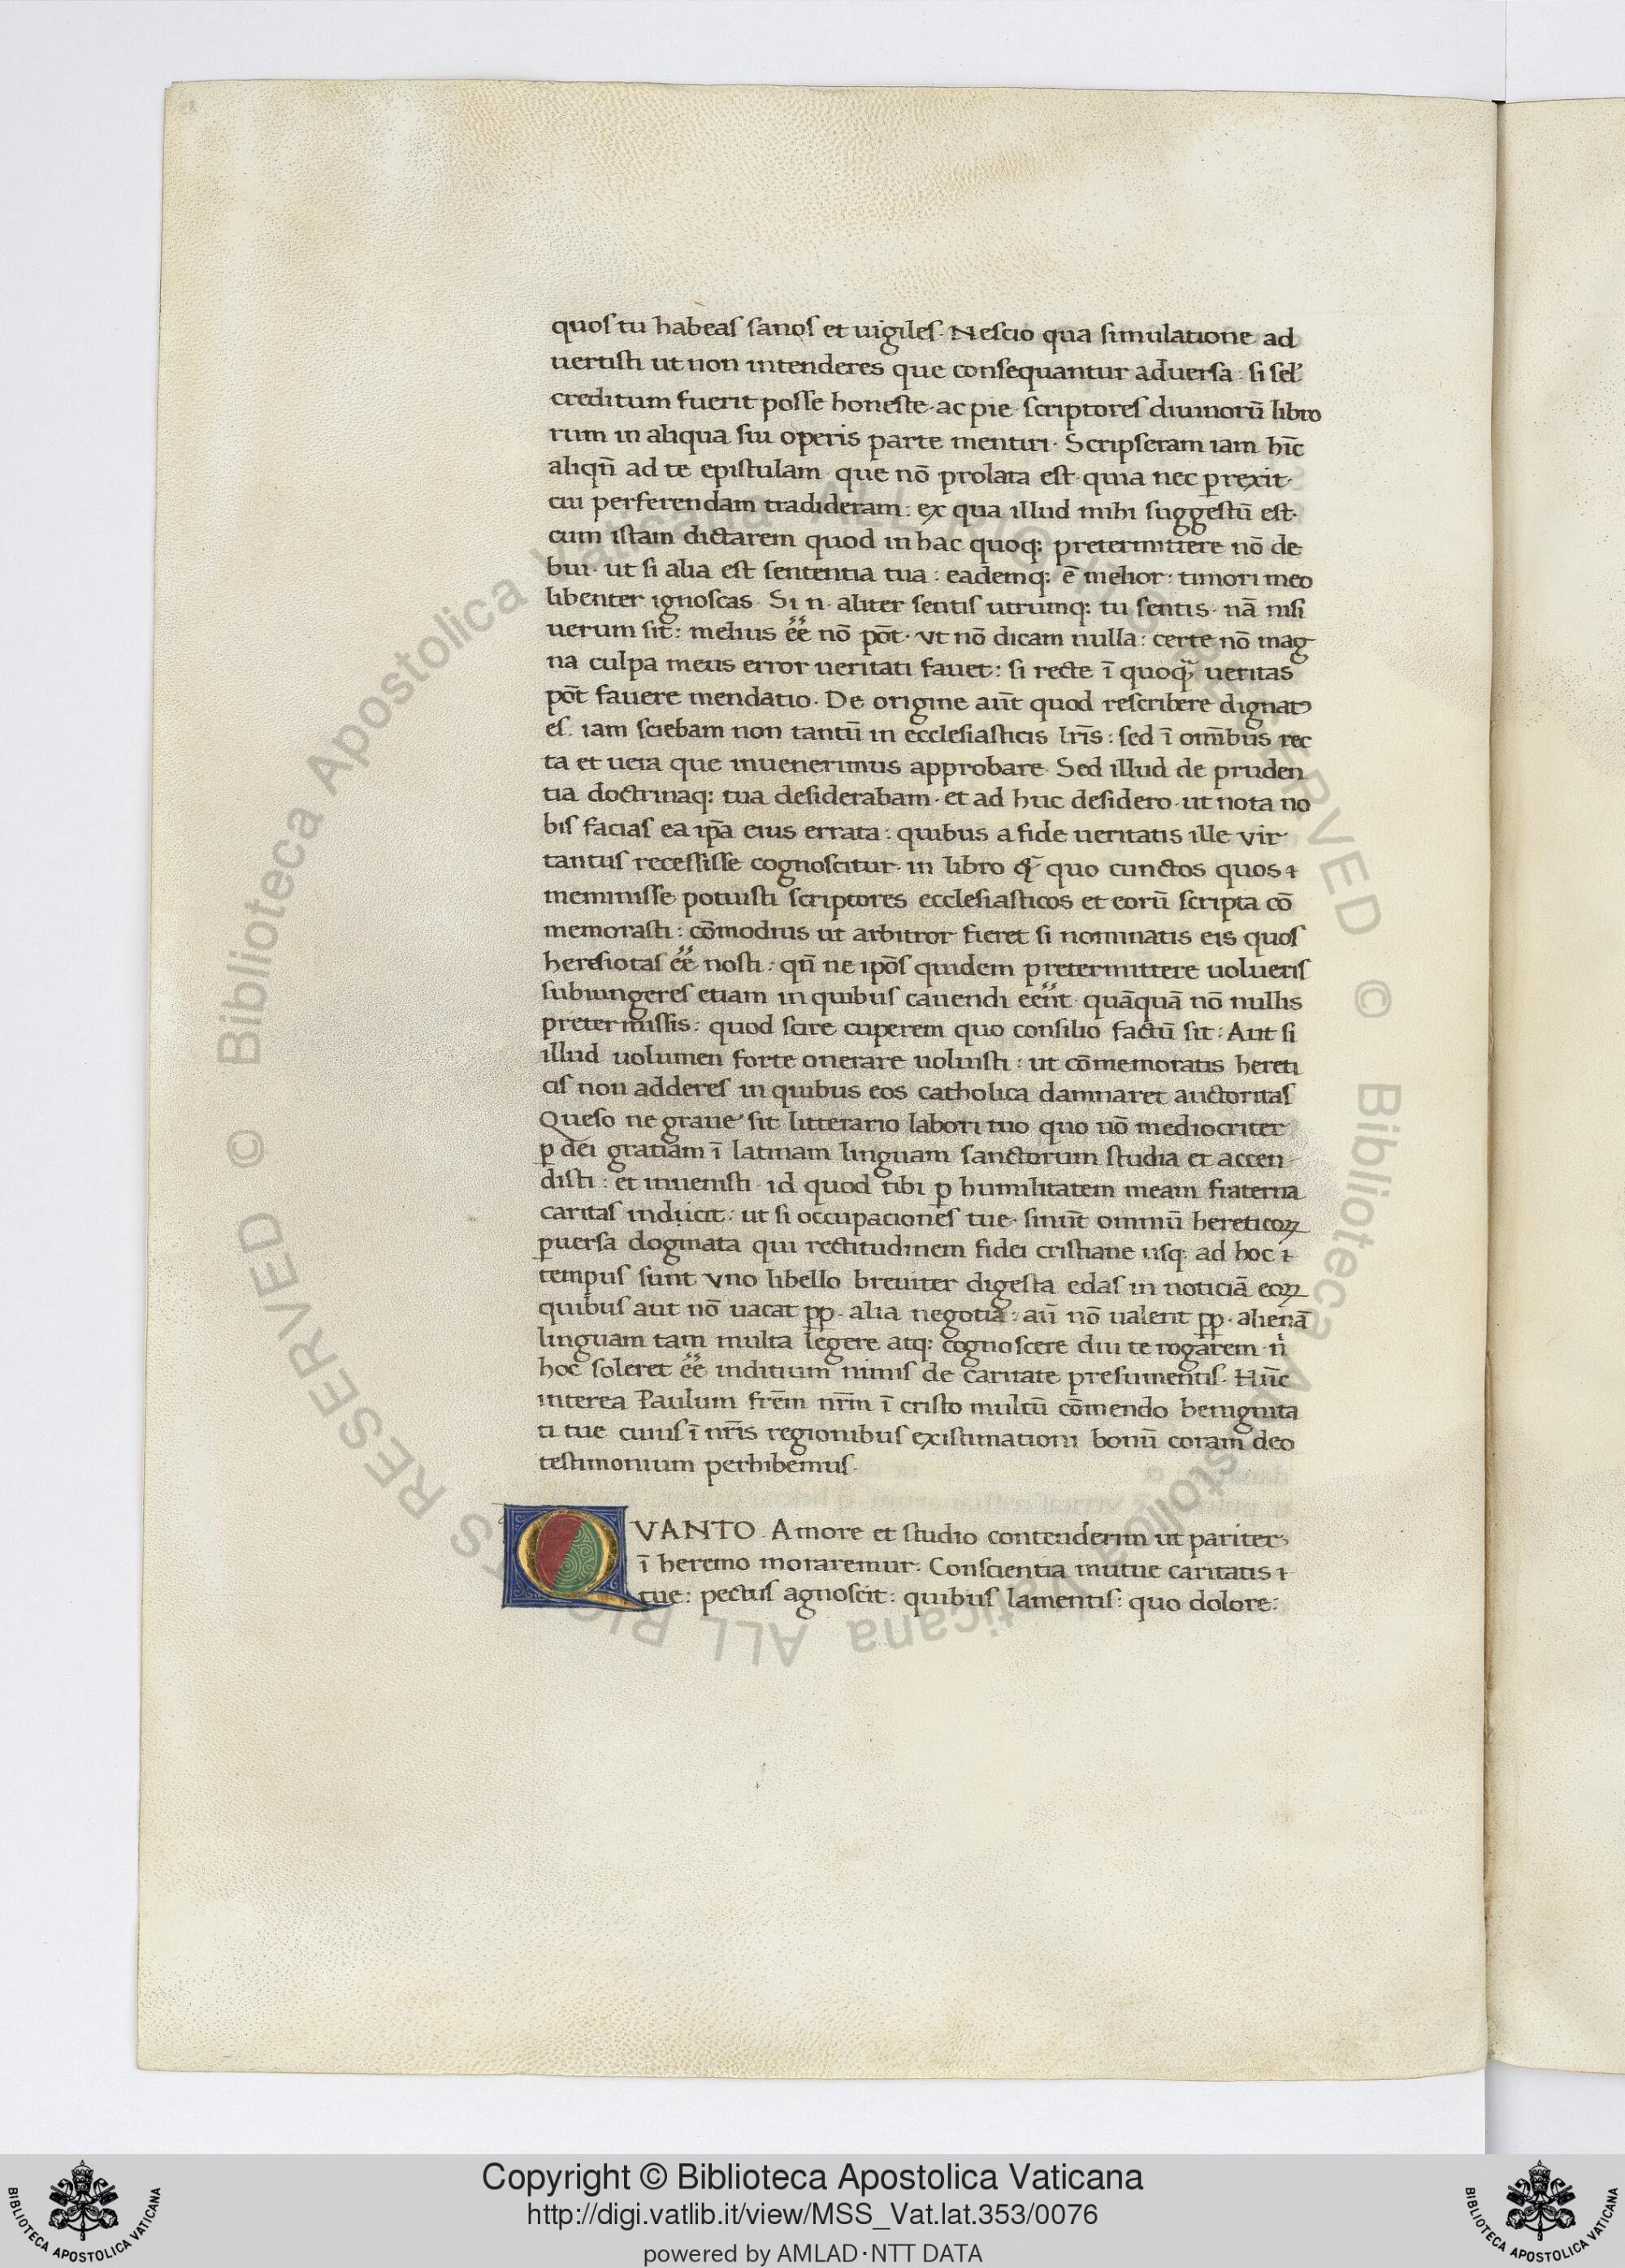 quos tu habeas sanos et uigiles. Nescio qua simulatione ad
uertisti ut non intenderes que consequantur aduersa. si sel̄
creditum fuerit posse honeste. ac pie. scriptores diuinorū libro
rum in aliqua sui operis parte mentiri. Scripseram iam hīc
aliqn̄ ad te epistulam. que nō prolata est. quia nec prexit.
cui perferendam tradideram: ex qua illud mihi suggestū est.
cum istam dictarem quod in hac quoq: pretermittere nō de
bui. ut si alia est sententia tua: eademq: ē melior: timori meo
libenter ignoscas. Si n. aliter sentis utrumq: tu sentis. nā nisi
uerum sit: melius ēē nō pōt. vt nō dicam nulla: certe nō mag
na culpa meus error ueritati fauet: si recte ī quoq̄ ueritas
pōt fauere mendatio. De origine aūt quod rescribere dignatꝰ
es. iam sciebam non tantū in ecclesiasticis lr̄is: sed ī om̄ibus rec
ta et uera que inuenerimus approbare. Sed illud de pruden
tia doctrinaq: tua desiderabam. et ad huc desidero. ut nota no
bis facias ea ip̄a eius errata: quibus a fide ueritatis ille vir
tantus recessisse cognoscitur. in libro q̄ quo cunctos quos
meminisse potuisti scriptores ecclesiasticos et eorū scripta cō
memorasti: cōmodius ut arbitror fieret si nominatis eis quos
heresiotas ēē nosti: qn̄ ne ipōs quidem pretermittere uolueris
subiungeres etiam in quibus cauendi eēnt. quāquā nō nullis
pretermissis: quod scire cuperem quo consilio factū sit: Aut si
illud uolumen forte onerare uoluisti: ut cōmemoratis hereti
cis non adderes in quibus eos catholica damnaret auctoritas
Queso ne graue sit litterario labori tuo quo nō mediocriter
ꝑ dei gratiam ī latinam linguam sanctorum studia et accen
disti: et inuenisti. id quod tibi ꝑ humilitatem meam fraterna
caritas inducit: ut si occupaciones tue. sinūt omniū hereticoꝝ
ꝑuersa dogmata qui rectitudinem fidei cristiane usq: ad hoc
tempus sunt vno libello breuiter digesta edas in noticiā eoꝝ
quibus aut nō uacat pp. alia negotia: aū nō ualent pp. alienā
linguam tam multa legere atq: cognoscere diu te rogarem. n̍
hoc soleret ēē inditium nimis de caritate presumentis. Hūc
interea Paulum frēm nr̄m ī cristo multū cōmendo benignita
ti tue cuius ī nr̄is regionibus existimationi bonū coram deo
testimonium perhibemus.
QVANTO Amore et studio contenderim ut pariter
ī heremo moraremur: Conscientia mutue caritatis
tue: pectus agnoscit: quibus lamentis: quo dolore:
Copyright © Biblioteca Apostolica Vaticana
http://digi.vatlib.it/view/MSS_Vat.lat.353/0076
powered by AMLAD·NTT DATA
BIBLIOTECA APOSTOLICA VATICANA
BIBLIOTECA APOSTOLICA VATICANA